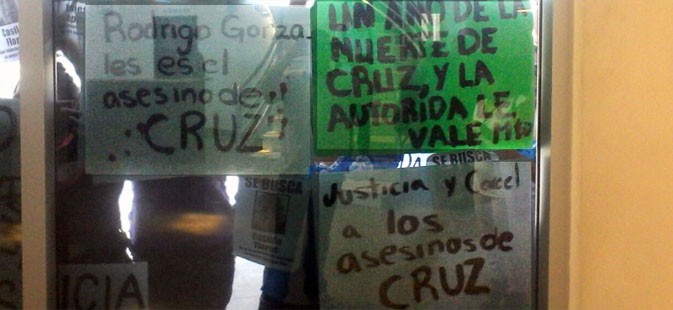 Rodrigo Gonza
les es el
asesino de
CRUZ
UN AÑO DE LA
MUERTE DE
CRUZ, Y LA
AUTORIDA LE
VALE
SE BUSCA
SE BUSCA
Justicia y Carcel
a los
asesinos de
CRUZ
ICIA